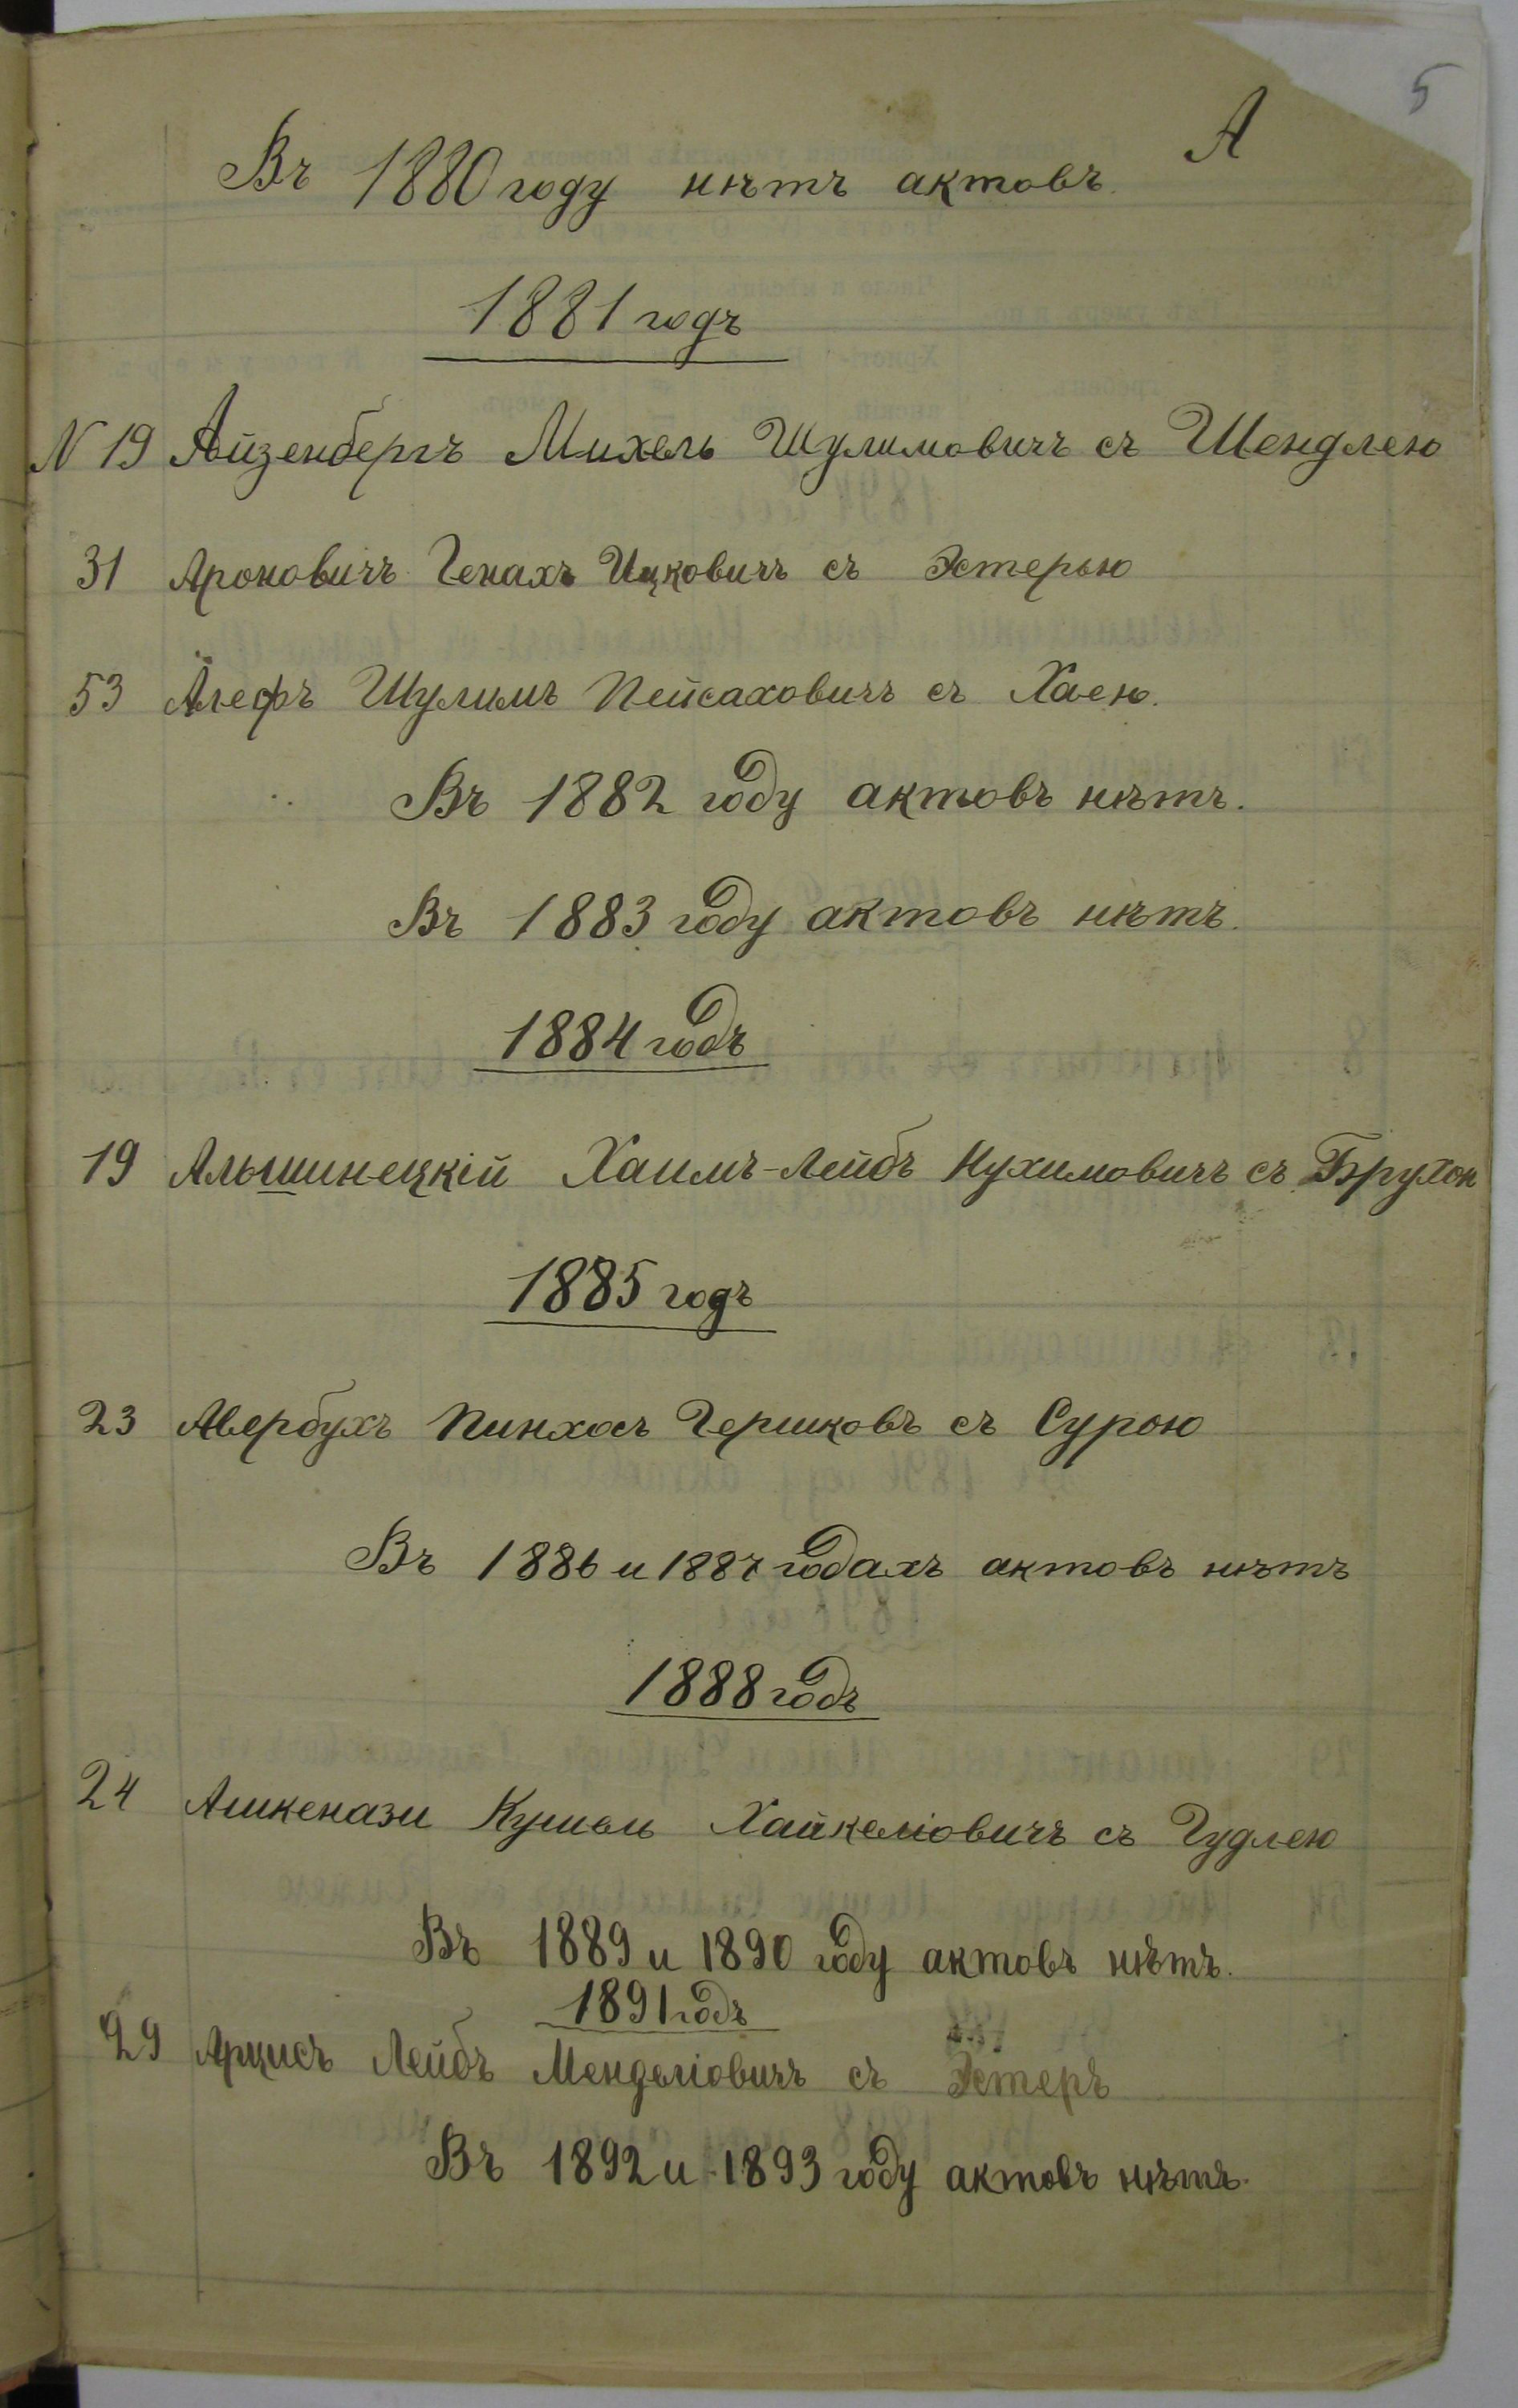 5
А
Въ 1880 году нѣтъ актовъ.
1881 годъ
N 19 Айзенбергъ Михель Шулимовичъ съ Шендлею
31 Ароновичъ Генахъ Ицковичъ съ Эстерью
53 Алефъ Шулимъ Пейсаховичъ съ Хаею.
Въ 1882 году актовъ нѣтъ.
Въ 1883 году актовъ нѣтъ.
1884 годъ
19 Альшинецкій Хаимъ-Лейбъ Нухимовичъ съ
1885 годъ
23 Авербухъ Пинхосъ Гершковъ съ Сурою
Въ 1886 и 1887 годахъ актовъ нѣтъ
1888 годъ
24 Ашкенази Хайкеліовичъ съ Гудлею
Въ 1889 и 1890 году актовъ нѣтъ.
1891 годъ
29 Арцисъ Лейбъ Менделіовичъ съ Эстеръ
Въ 1892 и 1893 году актовъ нѣтъ.